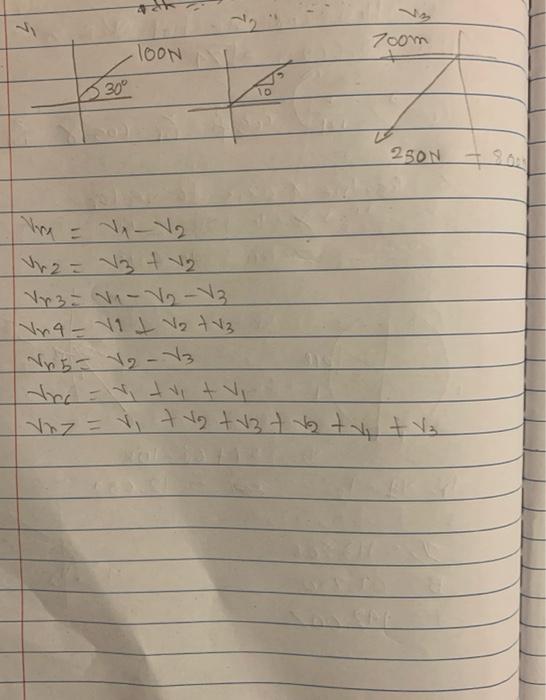 V1
V2
V3
100N
30°
10
700m
250N
Vr1 = V1 - V2
Vr2 = V3 + V2
Vr3 = V1 - V2 - V3
Vr4 = V1 + V2 + V3
Vr5 = V2 - V3
Vr6 = V1 + V1 + V1
Vr7 = V1 + V2 + V3 + V2 + V1 + V3